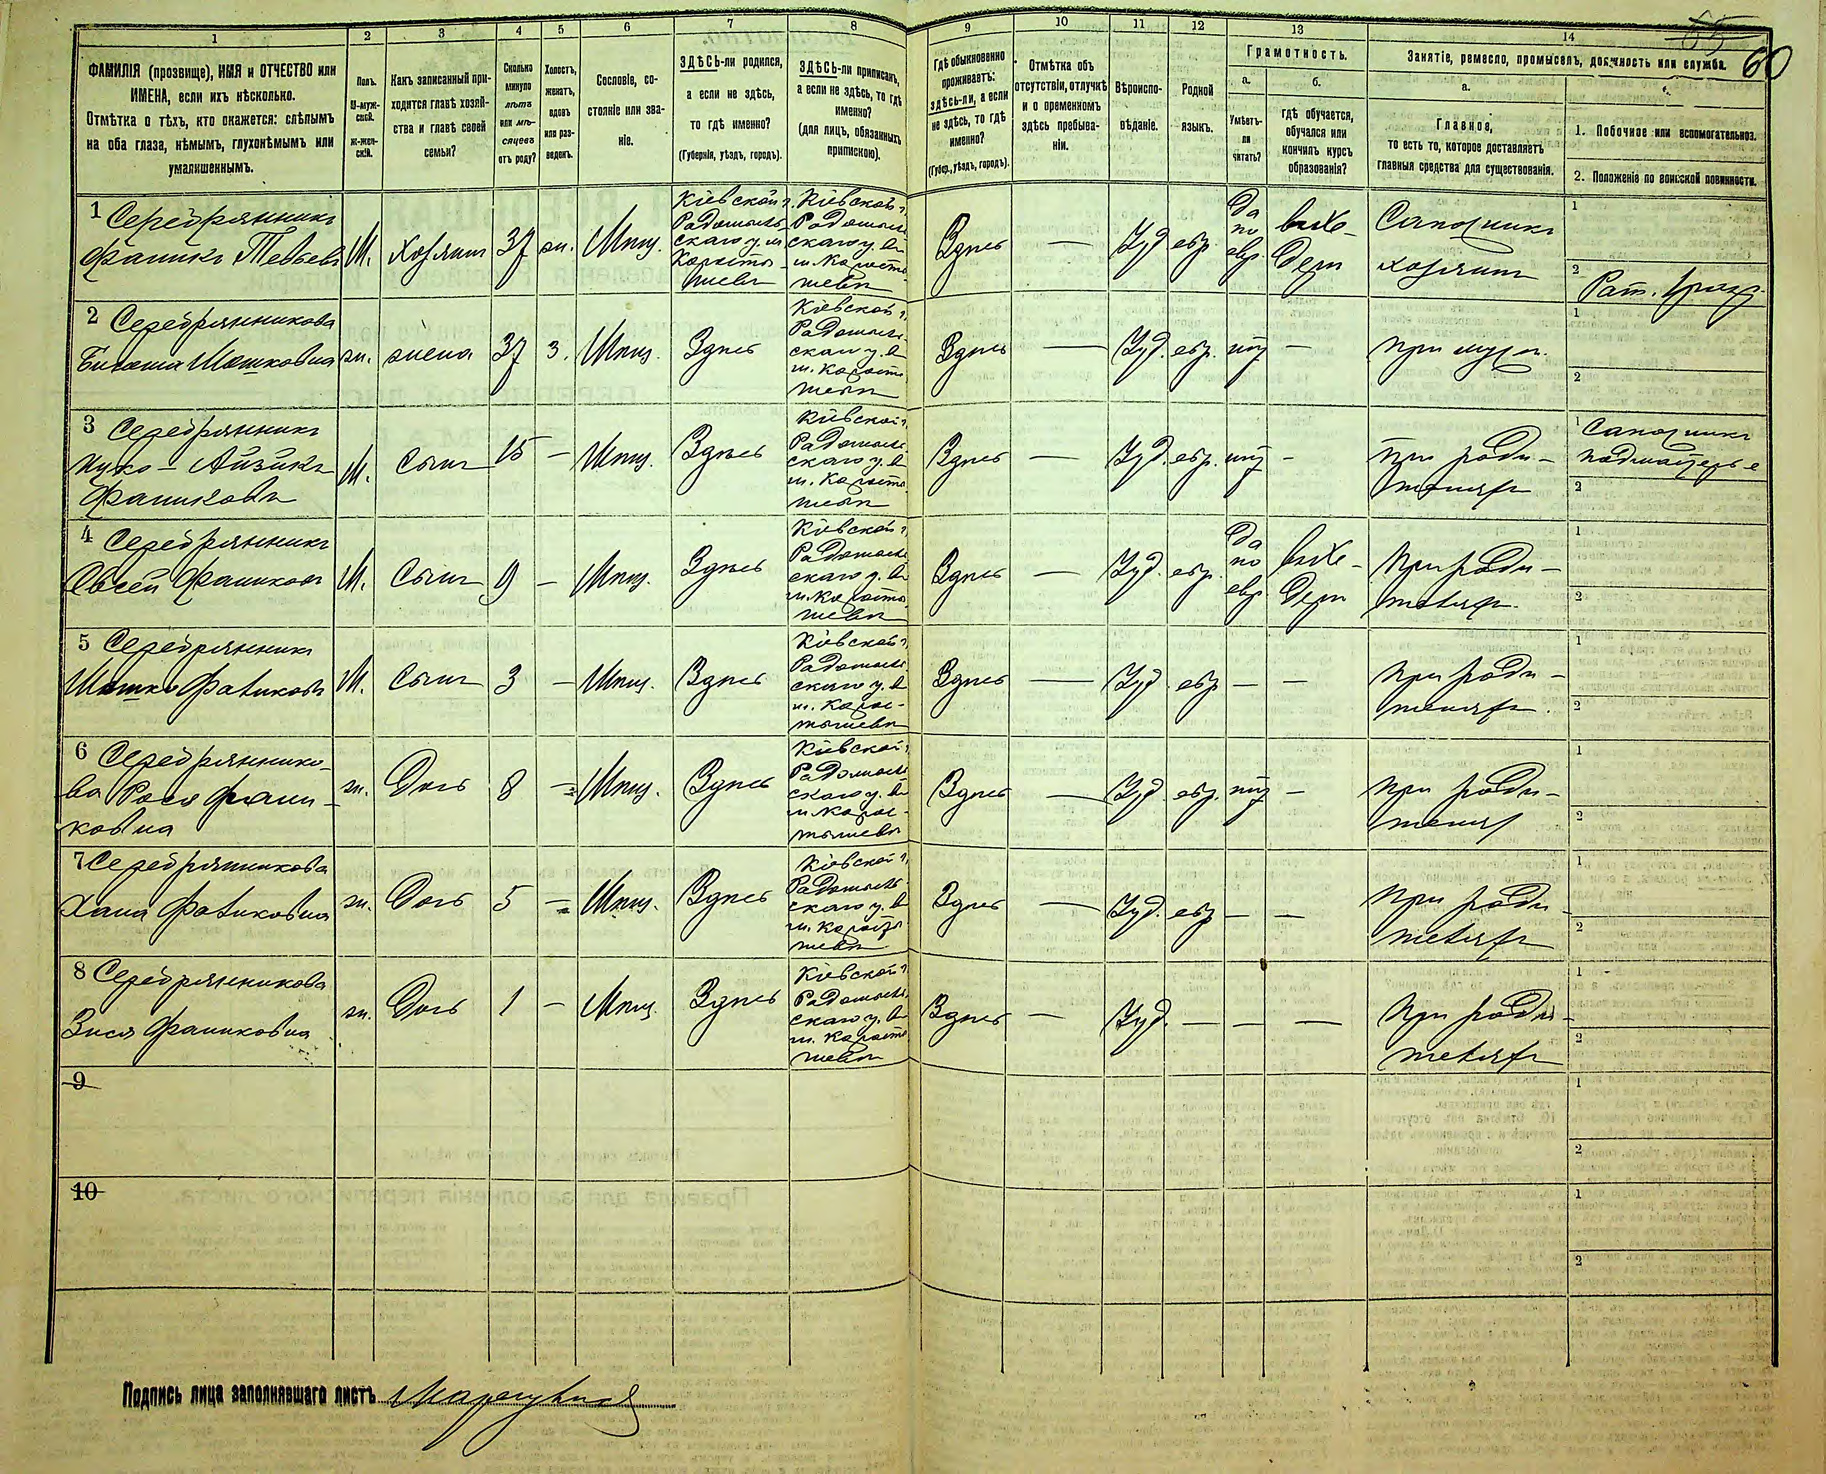 1 2 3 4 5 6 7 8 9 10 11 12 13 14
65 60
ФАМИЛІЯ (прозвище), ИМЯ и ОТЧЕСТВО или
ИМЕНА, если ихъ нѣсколько.
Отмѣтка о тѣхъ, кто окажется: слѣпымъ
на оба глаза, нѣмымъ, глухонѣмымъ или
умалишеннымъ.
Полъ.
М-муж-
ской.
Ж-жен-
скій.
Какъ записанный при-
ходится главѣ хозяй-
ства и главѣ своей
семьи?
Сколько
минуло
лѣтъ
или мѣ-
сяцевъ
отъ роду?
Холостъ,
женатъ,
вдовъ
или раз-
веденъ.
Сословіе, со-
стояніе или зва-
ніе.
ЗДѢСЬ-ли родился,
а если не здѣсь,
то гдѣ именно?
(Губернія, уѣздъ, городъ).
ЗДѢСЬ-ли приписанъ,
а если не здѣсь, то гдѣ
именно?
(для лицъ, обязанныхъ
припискою).
Гдѣ обыкновенно
проживаетъ:
здѣсь-ли, а если
не здѣсь, то гдѣ
именно?
(Губер., уѣздъ, городъ).
Отмѣтка объ
отсутствіи, отлучкѣ
и о временномъ
здѣсь пребыва-
ніи.
Вѣроиспо-
вѣданіе.
Родной
языкъ.
Грамотность.
а.
Умѣетъ-
ли
читать?
б.
гдѣ обучается,
обучался или
кончилъ курсъ
образованія?
Занятіе, ремесло, промыселъ, должность или служба.
а.
Главное,
то есть то, которое доставляетъ
главныя средства для существованія.
1. Побочное или вспомогательное.
2. Положеніе по воинской повинности.
1 Серебрянникъ
Фаликъ Тевьевъ М. хозяинъ 37 ж. Мѣщ.
Кіевской г. Радомысль-
скаго у. м.
Коросты-
шевъ
Кіевской г. Радомысль
скаго у. въ
м. Корост
шевъ
Здѣсь — Іуд евр.
Да
по
евр.
въ хе-
дерѣ
Сапожникъ
хозяинъ
1
2 Рат.
2 Серебрянникова
Мошковна ж. жена 37 з. Мѣщ. Здѣсь
Кіевской г.
Радомысль
скаго у. въ
м. Корост
шевъ
Здѣсь — Іуд. евр. нѣт —
при муж.
1
2
3 Серебрянникъ
Айзикъ
Фаликовъ М. Сынъ 15 — Мѣщ. Здѣсь
Кіевской г.
Радомысль
скаго у. въ
м. Корост
шевъ
Здѣсь — Іуд. евр. нѣт —
При роди-
теляхъ
1 Сапожникъ
подмастерье
2
4 Серебрянникъ
Овсей Фаликовъ М. Сынъ 9 — Мѣщ. Здѣсь
Кіевской г.
Радомысль
скаго у. въ
м. Коросты
шевъ
Здѣсь — Іуд. евр.
Да
по
евр
въ хе-
дерѣ
При роди-
теляхъ.
1
2
5 Серебрянникъ
Мошко Фаликовъ М. Сынъ 3 — Мѣщ. Здѣсь
Кіевской г.
Радомысль
скаго у. въ
м. Корос-
тышевъ
Здѣсь — Іуд. евр — —
При роди-
теляхъ.
1
2
6 Серебряннико-
ва Рося Фали-
ковна ж. Дочь 8 — Мѣщ. Здѣсь
Кіевской г.
Радомысль
скаго у. въ
м. Корос-
тышевъ
Здѣсь — Іуд евр. нѣт —
При роди-
теляхъ
1
2
7 Серебрянникова
Хана Фаликовна ж. Дочь 5 — Мѣщ. Здѣсь
Кіевской г.
Радомысль-
скаго у. въ
м. Коросты
шевъ
Здѣсь — Іуд. евр — —
При роди-
теляхъ
1
2
8 Серебрянникова
Зися Фаликовна ж. Дочь 1 — Мѣщ. Здѣсь
Кіевской г.
Радомысль.
скаго у. въ
м. Корост
шевъ
Здѣсь — Іуд. — — —
При роди-
теляхъ
1
2
9
1
2
10
1
2
Подпись лица заполнявшаго листъ